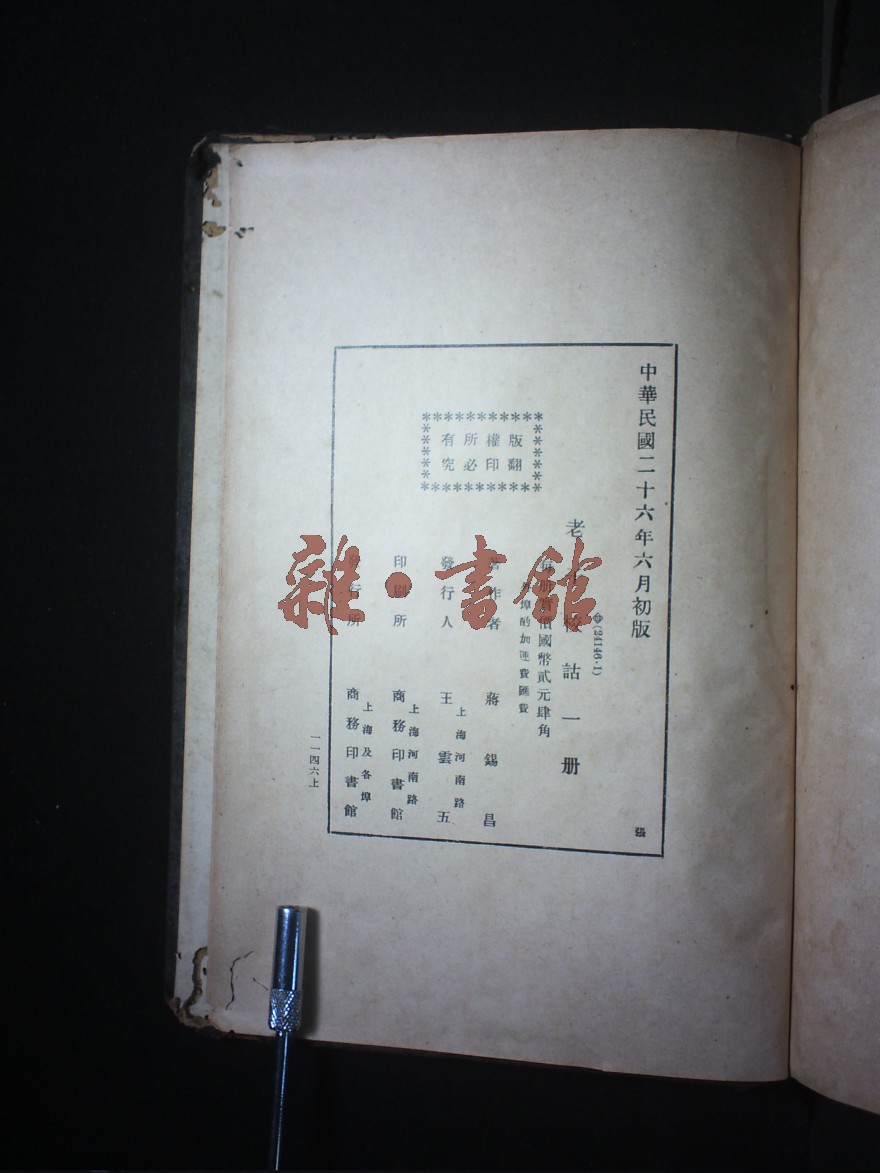 中華民國二十六年六月初版
(24146·1)
老子校詁一册
每册實價國幣貳元肆角
外埠酌加運費匯費
版權所有
翻印必究
著作者 蔣錫昌
發行人 王雲五
上海河南路
印刷所 商務印書館
上海河南路
發行所 商務印書館
上海及各埠
一一四六上
張
雜·書館